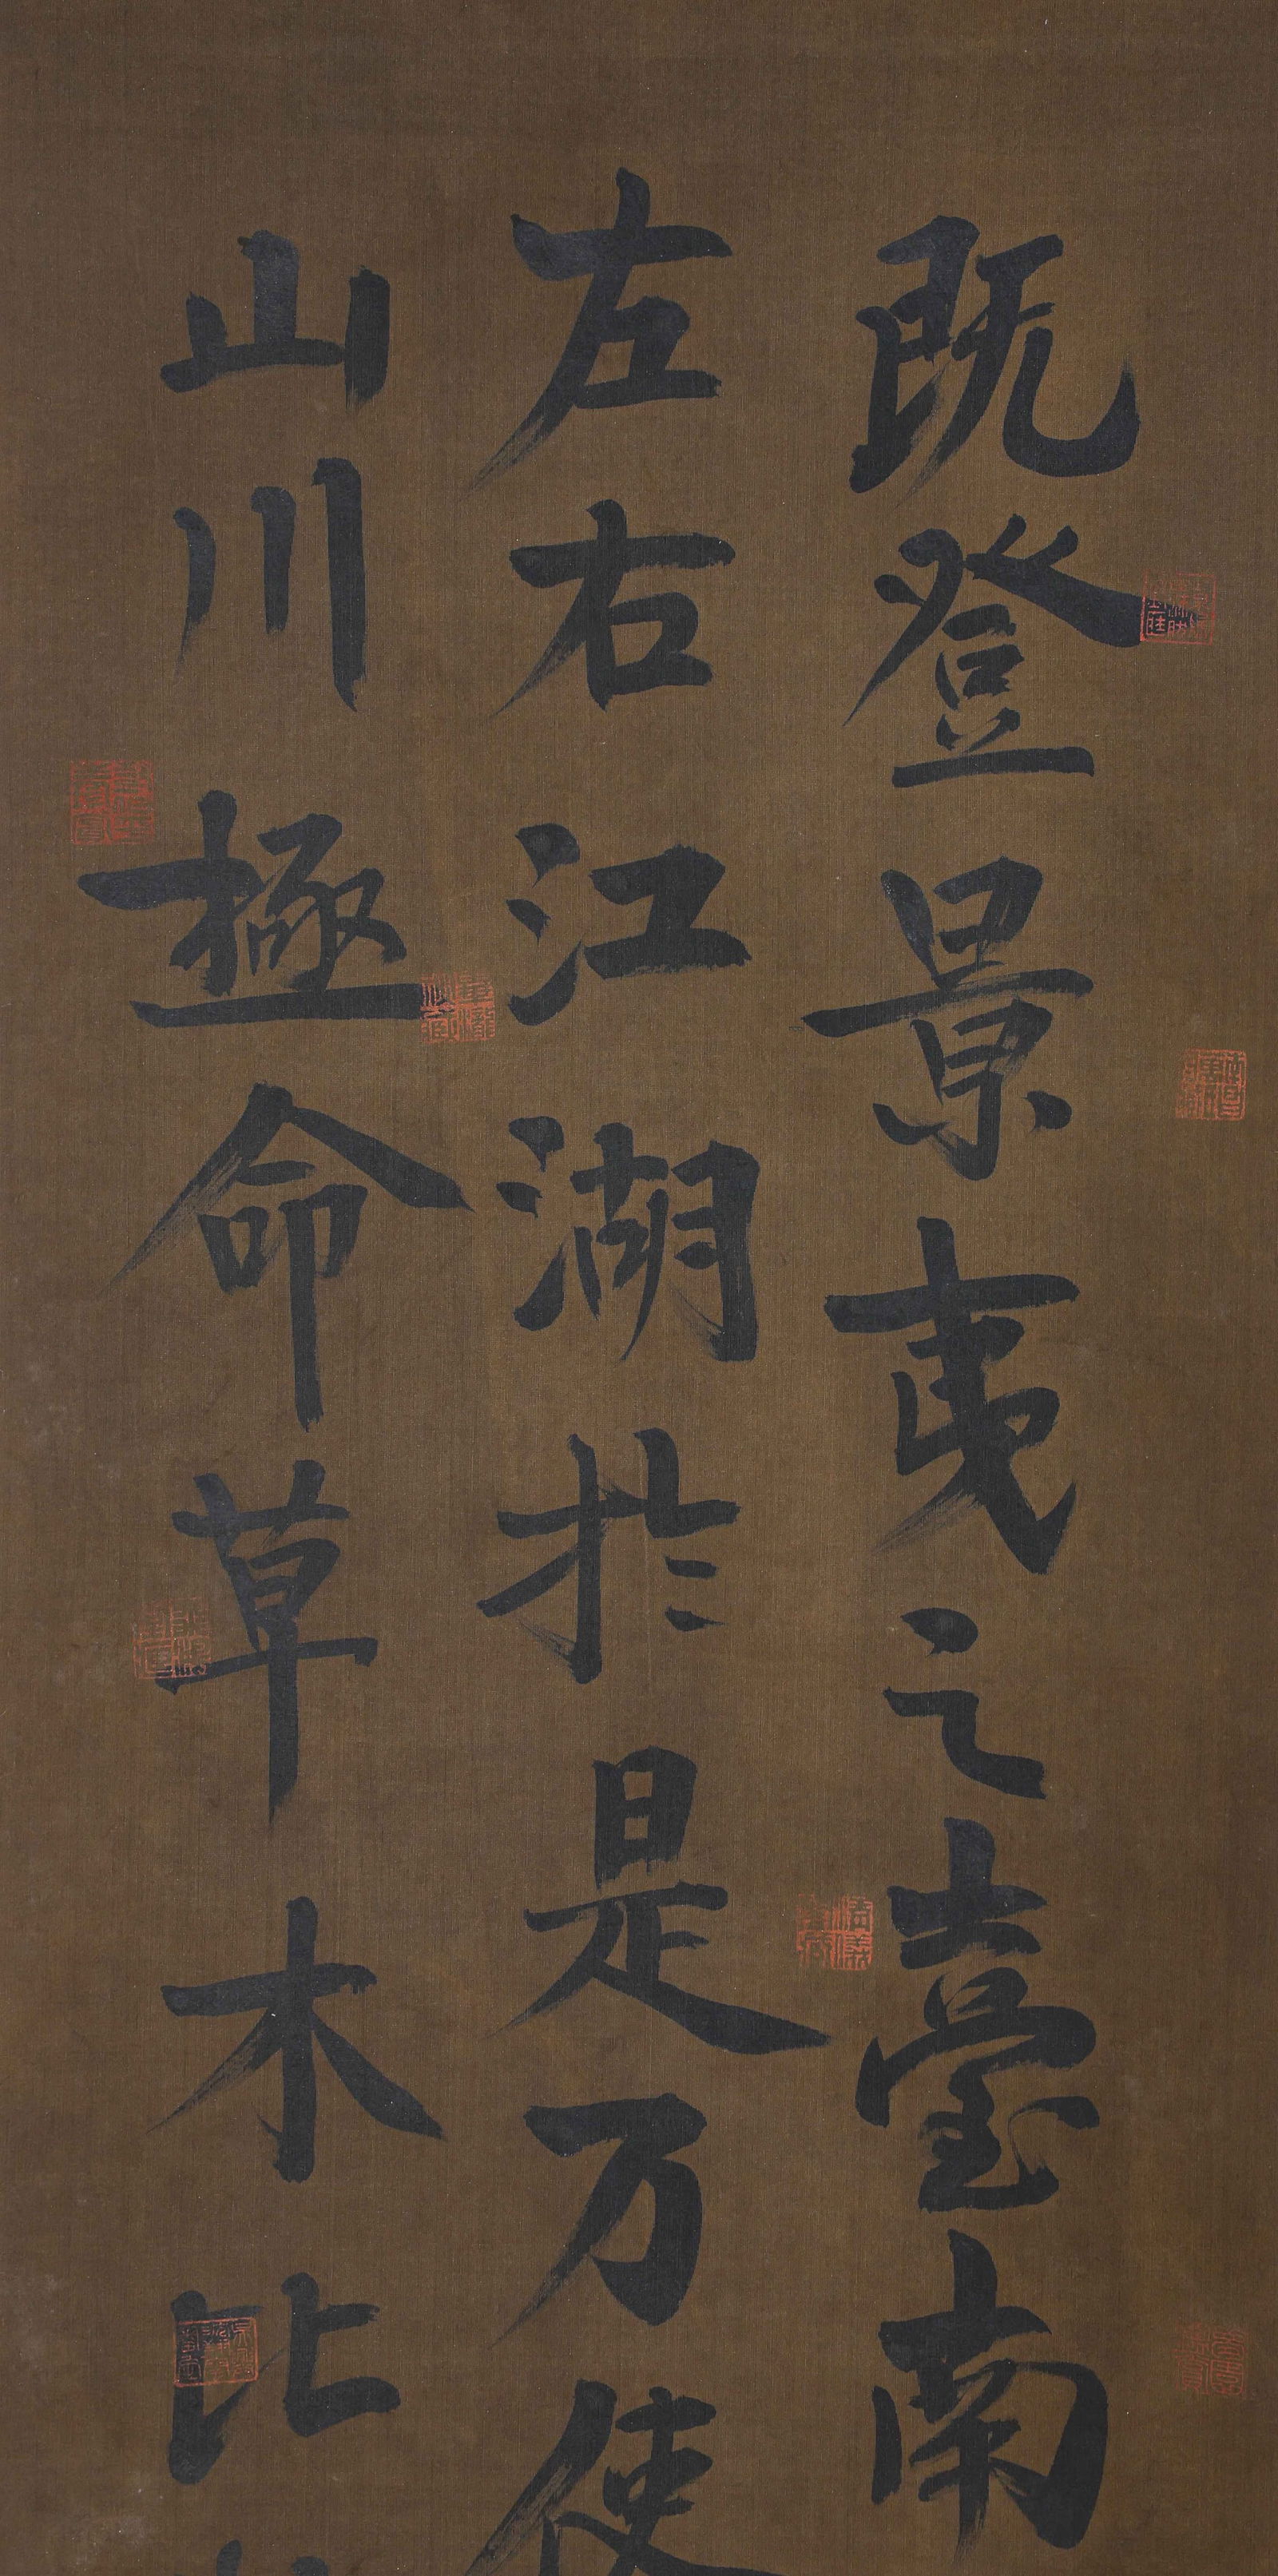 既登景夷之臺南
左右江湖於是乃使
山川極命草木比